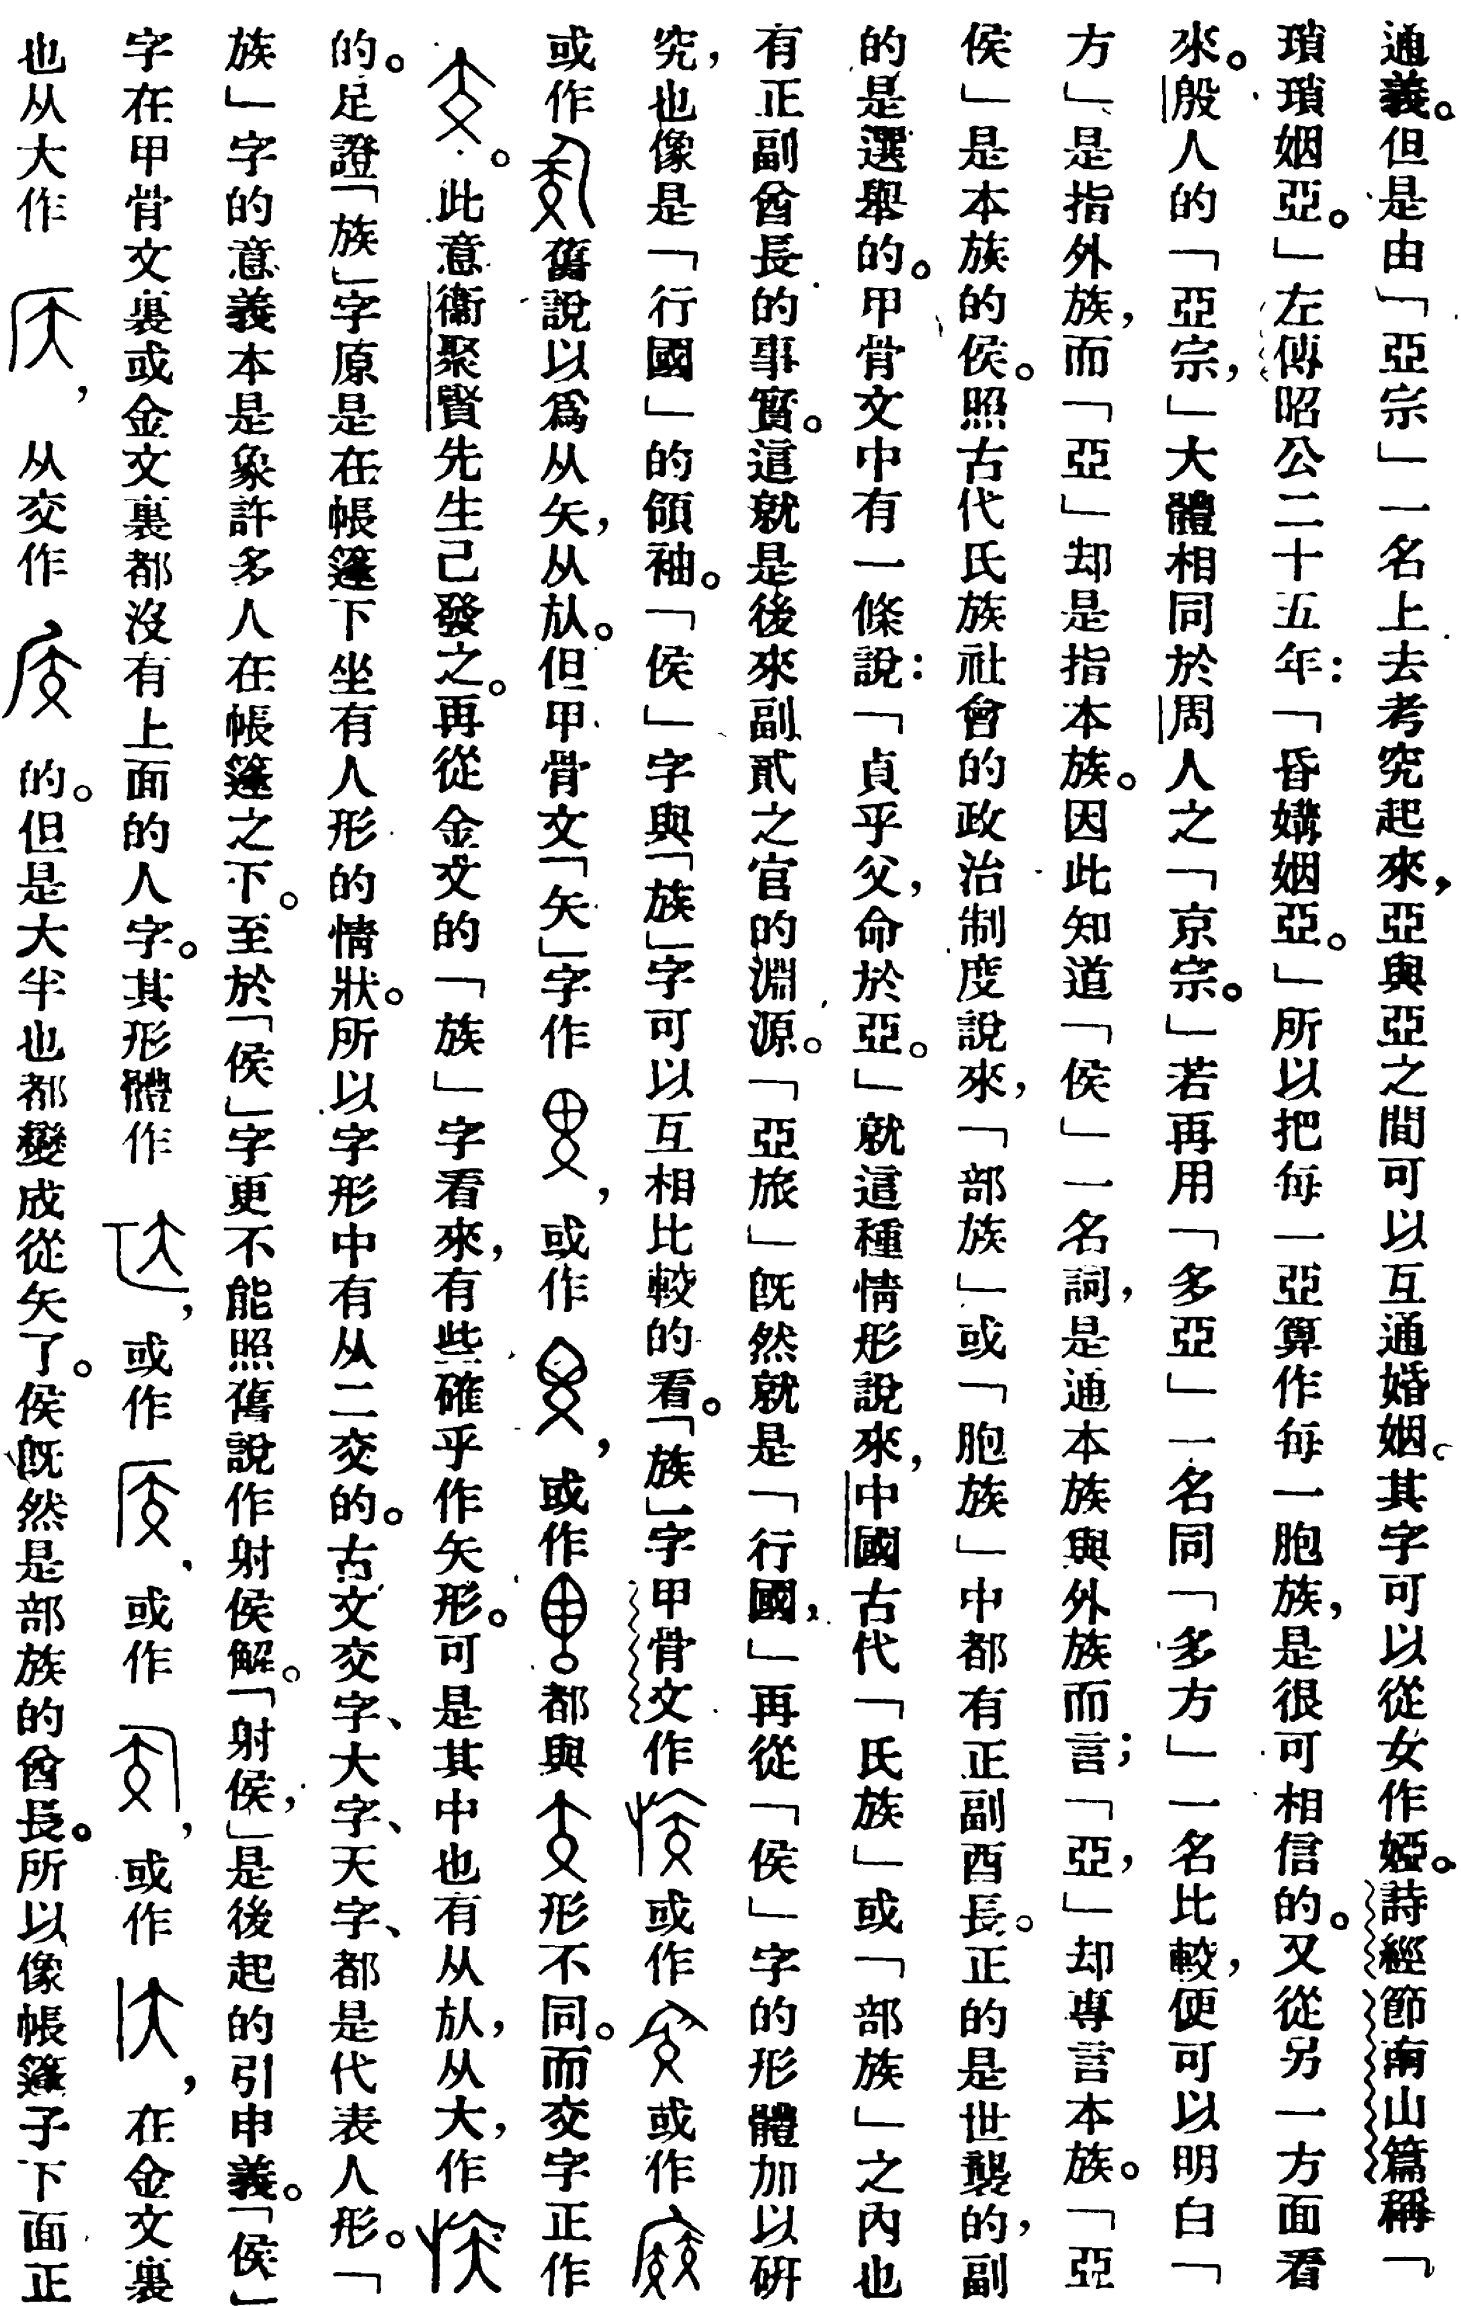 通義。但是由「亞宗」一名上去考究起來，亞與亞之間可以互通婚姻。其字可以從女作婭。詩經節南山篇稱「
瑣瑣姻亞。」左傳昭公二十五年：「昏媾姻亞。」所以把每一亞算作每一胞族，是很可相信的。又從另一方面看
來。殷人的「亞宗，」大體相同於周人之「京宗。」若再用「多亞」一名同「多方」一名比較，便可以明白「
方」是指外族，而「亞」却是指本族。因此知道「侯」一名詞，是通本族與外族而言；「亞，」却專言本族。「亞
侯」是本族的侯。照古代氏族社會的政治制度說來，「部族」或「胞族」中都有正副酉長。正的是世襲的，副
的是選舉的。甲骨文中有一條說：「貞乎父，命於亞。」就這種情形說來，中國古代「氏族」或「部族」之內也
有正副酋長的事實。這就是後來副貳之官的淵源。「亞旅」旣然就是「行國，」再從「侯」字的形體加以研
究，也像是「行國」的領袖。「侯」字與「族」字可以互相比較的看。「族」字甲骨文作或作或作
或作舊說以爲从矢，从㫃。但甲骨文「矢」字作，或作，或作都與形不同。而交字正作
。此意衞聚賢先生已發之。再從金文的「族」字看來，有些確乎作矢形。可是其中也有从㫃，从大，作
的。足證「族」字原是在帳篷下坐有人形的情狀。所以字形中有从二交的。古文交字、大字、天字、都是代表人形。「
族」字的意義本是象許多人在帳篷之下。至於「侯」字更不能照舊說作射侯解。「射侯，」是後起的引申義。「侯」
字在甲骨文裏或金文裏都沒有上面的人字。其形體作，或作，或作，或作，在金文裏
也从大作，从交作的。但是大半也都變成從矢了。侯旣然是部族的酋長。所以像帳篷子下面正